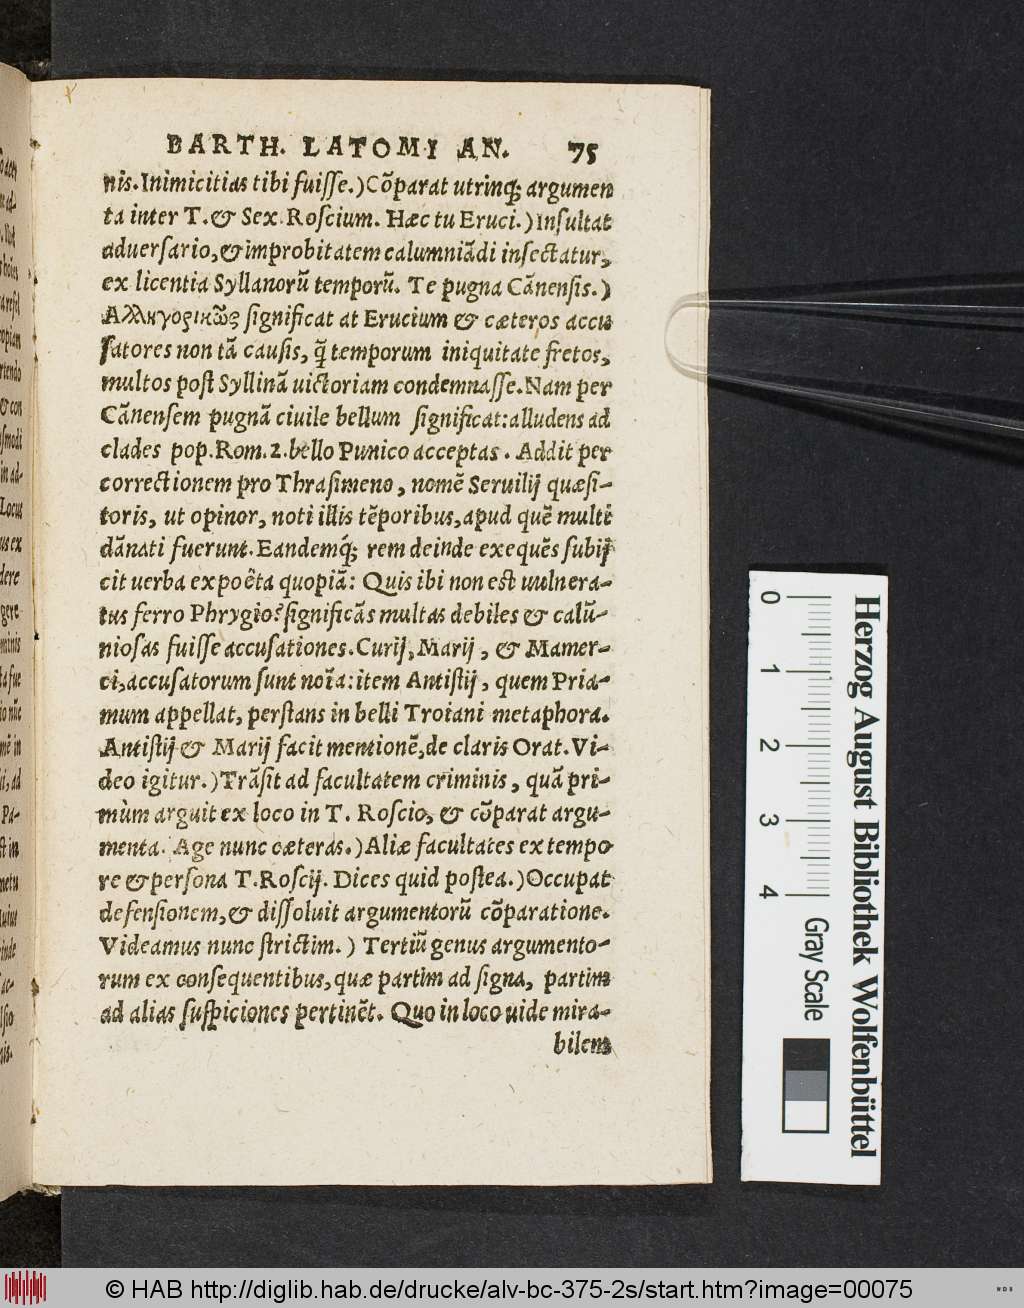 BARTH. LATOMI AN. 75
nis. Inimicitias tibi fuiſſe.) Cõparat utrinq; argumen
ta inter T. & Sex. Roſcium. Hæc tu Eruci.) Inſultat
aduerſario, & improbitatem calumniãdi inſectatur,
ex licentia Syllanorũ temporũ. Te pugna Cãnenſis.)
Αλληγορικῶς ſignificat at Erucium & cæteros accu
ſatores non tã cauſis, q̃ temporum iniquitate fretos,
multos poſt Syllinã uictoriam condemnaſſe. Nam per
Cãnenſem pugnã ciuile bellum ſignificat: alludens ad
clades pop. Rom. 2. bello Punico acceptas. Addit per
correctionem pro Thraſimeno, nomẽ Seruilij quæſi-
toris, ut opinor, noti illis tẽporibus, apud quẽ multi
dãnati fuerunt. Eandemq́; rem deinde exequẽs ſubij
cit uerba ex poêta quopiã: Quis ibi non eſt uulnera-
tus ferro Phrygio? ſignificãs multas debiles & calũ-
nioſas fuiſſe accuſationes. Curij, Marij, & Mamer-
ci, accuſatorum ſunt noĩa: item Antiſtij, quem Pria-
mum appellat, perſtans in belli Troiani metaphora.
Antiſtij & Marij facit mentionẽ, de claris Orat. Vi-
deo igitur.) Trãſit ad facultatem criminis, quã pri-
mùm arguit ex loco in T. Roſcio, & cõparat argu-
menta. Age nunc cæteras.) Aliæ facultates ex tempo
re & perſona T. Roſcij. Dices quid poſtea.) Occupat
defenſionem, & diſſoluit argumentorũ cõparatione.
Videamus nunc ſtrictim.) Tertiũ genus argumento-
rum ex conſequentibus, quæ partim ad ſigna, partim
ad alias ſuſpiciones pertinẽt. Quo in loco uide mira-
bilem
0 1 2 3 4
Gray Scale
Herzog August Bibliothek Wolfenbüttel
© HAB http://diglib.hab.de/drucke/alv-bc-375-2s/start.htm?image=00075